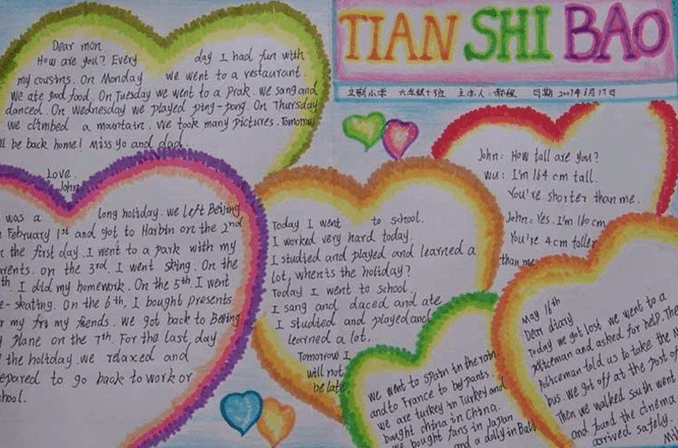 TIAN SHI BAO
文制小学 六年级十3班 主办人: 日期 2007年6月17日
Dear mom
How are you? Every day I had fun with
my cousins. On Monday we went to a restaurant.
We ate good food. On Tuesday we went to a prak. We sang and
danced. On Wednesday we played ping-pong. On Thursday
we climbed a mountain. We took many pictures. Tomorrow
ll be back home! Miss yo and dad.
Love.
John
was a long holiday. we left Beijing
February 1st and got to Harbin on the 2nd
the first day. I went to a park with my
arents. on the 3rd. I went sking. On the
th. I did my homework. On the 5th. I went
e-skating. On the 6th, I bought presents
r my fri my friends. we got back to Beijing
plane on the 7th. For the last day
the holiday we rdaxed and
epared to go back to work or
chool.
Today I went to school.
I worked very hard today.
I studied and played and learned a
lot, when's the holiday?
Today I went to school
I sang and daced and ate
I studied and played and
learned a lot.
Tomorrow I
will not
be late
John: How tall are you?
Wu: I'm 164 cm tall.
You're shorter than me.
John: Yes. I'm 160 cm
You're 4 cm taller
than me
we went to Spain in the rain
and to France to by pants
we are turkey in Turkey and
bught china in China.
we bought fans in Japan
and a dolly in Bali
May 16th
Dear diary
Today we got lost. we went to a
policeman and asked for help. The
Policeman told us to take the
bus. we got off at the post of
Then we walked south went
and fund the cinema
arrived safely.